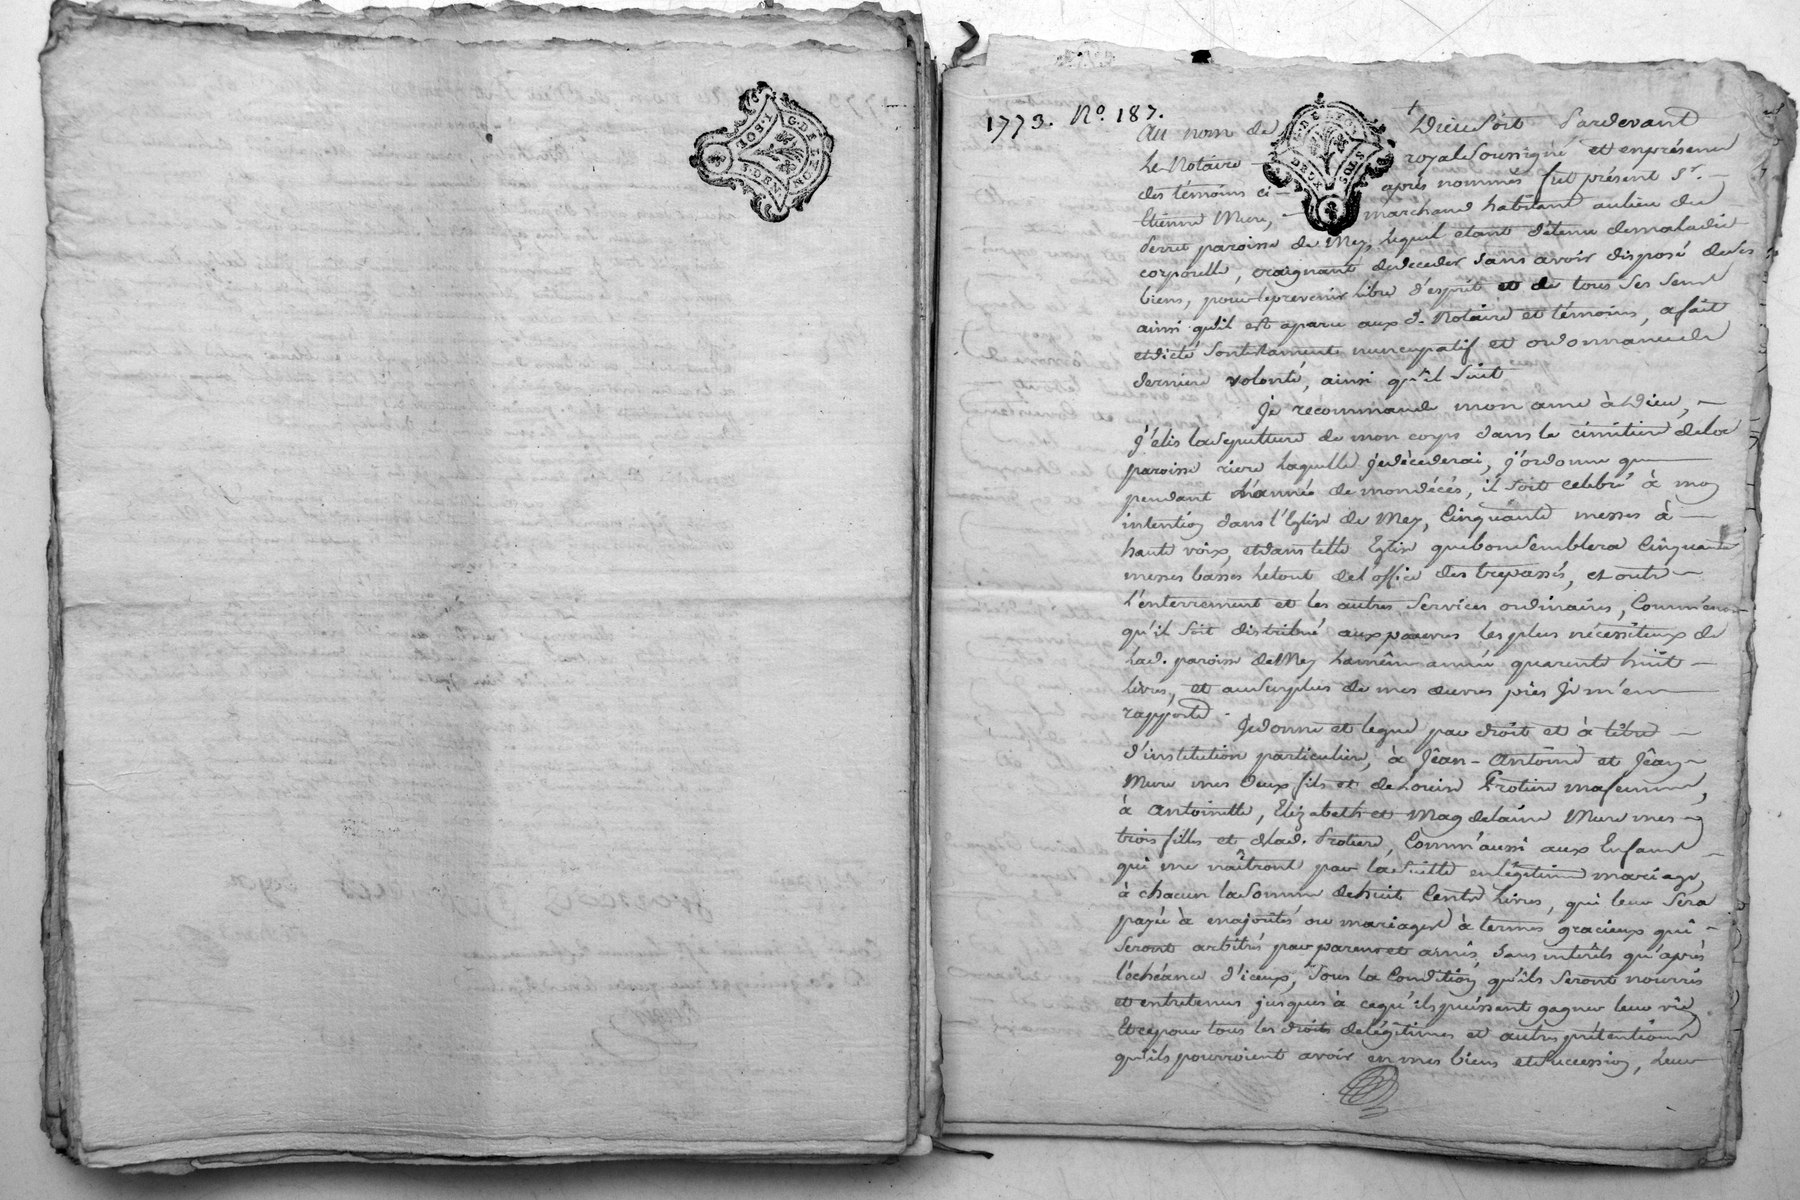 G. DE LYON
1. SOL
8. DEN
1773. No. 187.
G. DE LYON
DEUX SOLS
Au nom de Dieu soit Pardevant
Le Notaire royal soussigné et en présence
des témoins ci- après nommés fut présent Sr.
Etienne Mure, marchand habitant au lieu du
paroisse de Mey, lequel étant détenu de maladie
corporelle, craignant de déceder sans avoir disposé de ses
biens, pour le prevenir libre d'esprit et de tous ses sens
ainsi qu'il est aparu aux d. Notaire et témoins, a fait
et dicté son testament nuncupatif et ordonnance de
derniere volonté, ainsi qu'il suit
Je recommande mon ame à Dieu,
j'élis la sepulture de mon corps dans le cimitiere de la
paroisse riere laquelle je décèderai, j'ordonne que
pendant l'année de mon décés, il soit celebré à mon
intention dans l'Eglise de Mey, Cinquante messes à
haute voix, et dans telle Eglise que bon semblera Cinquante
messes basses le tout de l'office des trepassés, et outre
l'enterrement et les autres Services ordinaires, Comm'encor
qu'il soit distribué aux pauvres les plus nécessiteux de
lad. paroisse de Mey la même année quarente huit
livres, et au surplus de mes œuvres pies je m'en
rapporte. Je donne et legue par droit et à titre
d'institution particuliere, à Jean-Antoine et Jean
Mure mes deux fils et de Louise Protiere ma femme,
à Antoinette, Elizabeth et Magdelaine Mure mes
trois filles et de lad. Protiere, Comm'aussi aux Enfants
qui me naîtront par la suitte en légitime mariage,
à chacun la somme de huit Cents Livres, qui leur sera
payée à majorités ou mariages à termes gracieux qui
seront arbitrés par parens et amis, sans intérêts qu'après
l'échéance d'iceux, sous la Condition qu'ils seront nourris
et entretenus jusques à ce qu'ils puissent gagner leur vie
Et ce pour tous les droits de légitimes et autres prétentions
qu'ils pourroient avoir en mes biens et succession, leur